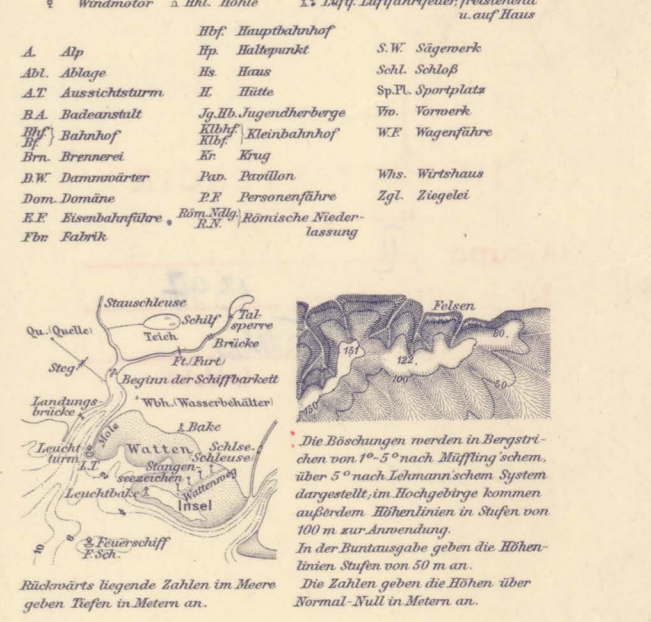 Windmotor
Hhl. Höhle
u. auf Haus
A. Alp
Abl. Ablage
A.T. Aussichtsturm
B.A. Badeanstalt
Bhf. Bf. } Bahnhof
Brn. Brennerei
D.W. Dammwärter
Dom. Domäne
E.F. Eisenbahnfähre
Fbr. Fabrik
Hbf. Hauptbahnhof
Hp. Haltepunkt
Hs. Haus
H. Hütte
Jg.Hb. Jugendherberge
Klbhf. Klbf. } Kleinbahnhof
Kr. Krug
Pav. Pavillon
P.F. Personenfähre
Röm.Ndlg. R.N. } Römische Nieder-
lassung
S.W. Sägewerk
Schl. Schloß
Sp.Pl. Sportplatz
Vw. Vorwerk
W.F. Wagenfähre
Whs. Wirtshaus
Zgl. Ziegelei
Stauschleuse
Qu. (Quelle)
Schilf
Teich
Tal-
sperre
Brücke
Steg
Ft. (Furt)
Beginn der Schiffbarkett
Landungs-
brücke
Wbh. (Wasserbehälter)
Mole
Bake
Leucht
turm
L.T.
Watten
Schlse.
Schleuse
Stangen-
seezeichen
Wattenweg
Leuchtbake
Insel
2
4
6
10
Feuerschiff
F.Sch.
Rückwärts liegende Zahlen im Meere
geben Tiefen in Metern an.
Felsen
80.
151
122.
100
50
150
Die Böschungen werden in Bergstri-
chen von 1°-5° nach Müffling'schem,
über 5° nach Lehmann'schem System
dargestellt; im Hochgebirge kommen
außerdem Höhenlinien in Stufen von
100 m zur Anwendung.
In der Buntausgabe geben die Höhen-
linien Stufen von 50 m an.
Die Zahlen geben die Höhen über
Normal-Null in Metern an.